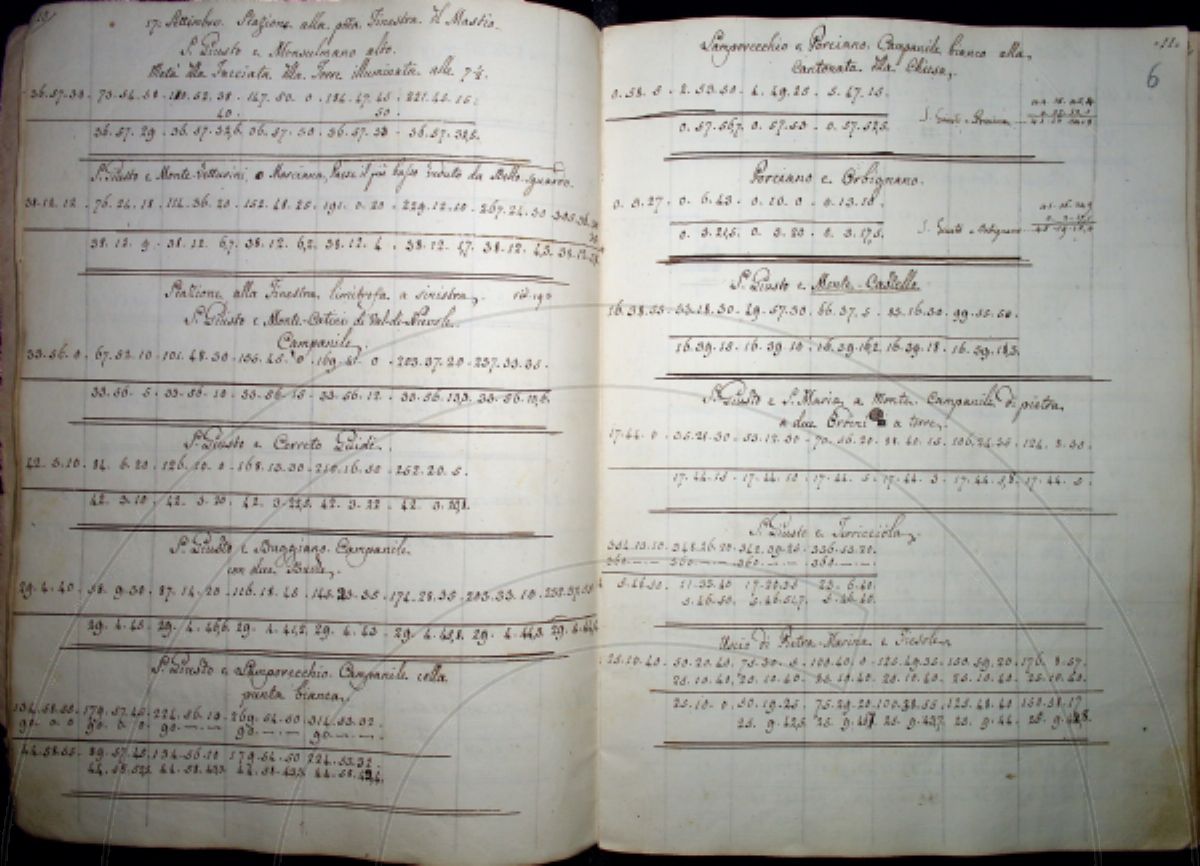 17. Settimbre. Stazione alla pma Finestra. Il Mastio.
S. Giusto e Monsulmano alto.
Metà della Facciata della Torre illuminata alle 7½.
36.57.30 - 73.54.58 - 110.52.38 - 147.50. 0 - 184.47.45 - 221.45.15.
40. 50.
36.57.29 - 36.57.32,6 36.57.30 - 36.57.33 - 36.57.32,5.
S. Giusto e Monte-Vetturini, o Marciana, Paese il più basso veduto da Bello-sguardo.
38.12.12 - 76.24.18 - 114.36.20 - 152.48.25 - 191. 0.20 - 229.12.10 - 267.24.30
38.12. 9 - 38.12. 6,7 38.12. 6,2 38.12. 4 - 38.12. 1,7 38.12. 4,3
Stazione alla Finestra limitrofa a sinistra.
S. Giusto e Monte-Catini di Val-di-Nievole.
Campanile.
33.56.0 - 67.52.10 - 101.48.30 - 135.45. 0 - 169.41. 0 - 203.37.20 - 237.33.35.
33.56. 5 - 33.56.10 - 33.56.15 - 33.56.12 - 33.56.13,3 33.56.10,6.
S. Giusto e Cerreto Guidi.
42.3.10 - 84.6.20 - 126.10.0 - 168.13.30 - 210.16.50 - 252.20.5.
42.3.10 - 42.3.20 - 42.3.22,5 42.3.22 - 42.3.20,8.
S. Giusto e Buggiano. Campanile
con due Buche.
29.4.40 - 58.9.30 - 87.14.20 - 116.18.45 - 145.23.35 - 174.28.35 - 203.33.10 -
29.4.45 - 29.4.46,6 29.4.41,2 29.4.43 - 29.4.45,8 29.4.44,3
S. Giusto e Lamporecchio. Campanile colla
punta bianca.
134.58.55 - 179.57.45 - 224.56.10 - 269.54.50 - 314.53.32.
90. 0. 0 90. 0. 0 90. — — 90. — — 90. — —
44.58.55 - 89.57.45 - 134.56.10 179.54.50 224.53.32.
44.58.52,5 44.58.43,3 44.58.42,5
.11.
6
Lamporecchio e Porciano. Campanile bianco alla
Cantonata della Chiesa.
0.58.5 - 2.53.50 - 4.49.25 - 5.47.15.
0.57.56,7 0.57.53 - 0.57.52,5.
S. Giusto e Porciano
Porciano e Orbignano.
0.3.27 - 0.6.43 - 0.10.0 - 0.13.10.
0.3.21,5 - 0.3.20 - 0.3.17,5.
S. Giusto e Orbignano
S. Giusto e Monte-Castello.
16.38.55 - 33.18.30 - 49.57.30 - 66.37.5 - 83.16.30 - 99.55.50.
16.39.15 - 16.39.10 - 16.39.16,2 16.39.18 - 16.39.18,3.
S. Giusto e S. Maria a Monte. Campanile di pietra
a due Ordini a torre.
17.44.0 - 35.28.30 - 53.12.30 - 70.56.20 - 88.40.15 - 106.24.35 - 124.8.30.
17.44.15 - 17.44.10 - 17.44.5 - 17.44.3 - 17.44.5,8 17.44.5.
S. Giusto e Terricciola.
354.13.10 - 348.26.20 - 342.39.25 - 336.53.20.
360. — — 360. — — 360. — — 360. — —
5.46.50. 11.33.40 17.20.35 23.6.40.
5.46.50. 5.46.51,7 5.46.40.
Uscio di Pietra-Marina e Fiesole.
25.10.40 - 50.20.40 - 75.30.5 - 100.40.0 - 125.49.35 - 150.59.20 - 176.8.57.
25.10.40. 25.10.40. 25.10.40. 25.10.40. 25.10.40. 25.10.40.
25.10.0 - 50.19.25 - 75.29.20 - 100.38.55 - 125.48.40 - 150.58.17
25.9.42,5 25.9.46,7 25.9.43,7 25.9.44 -